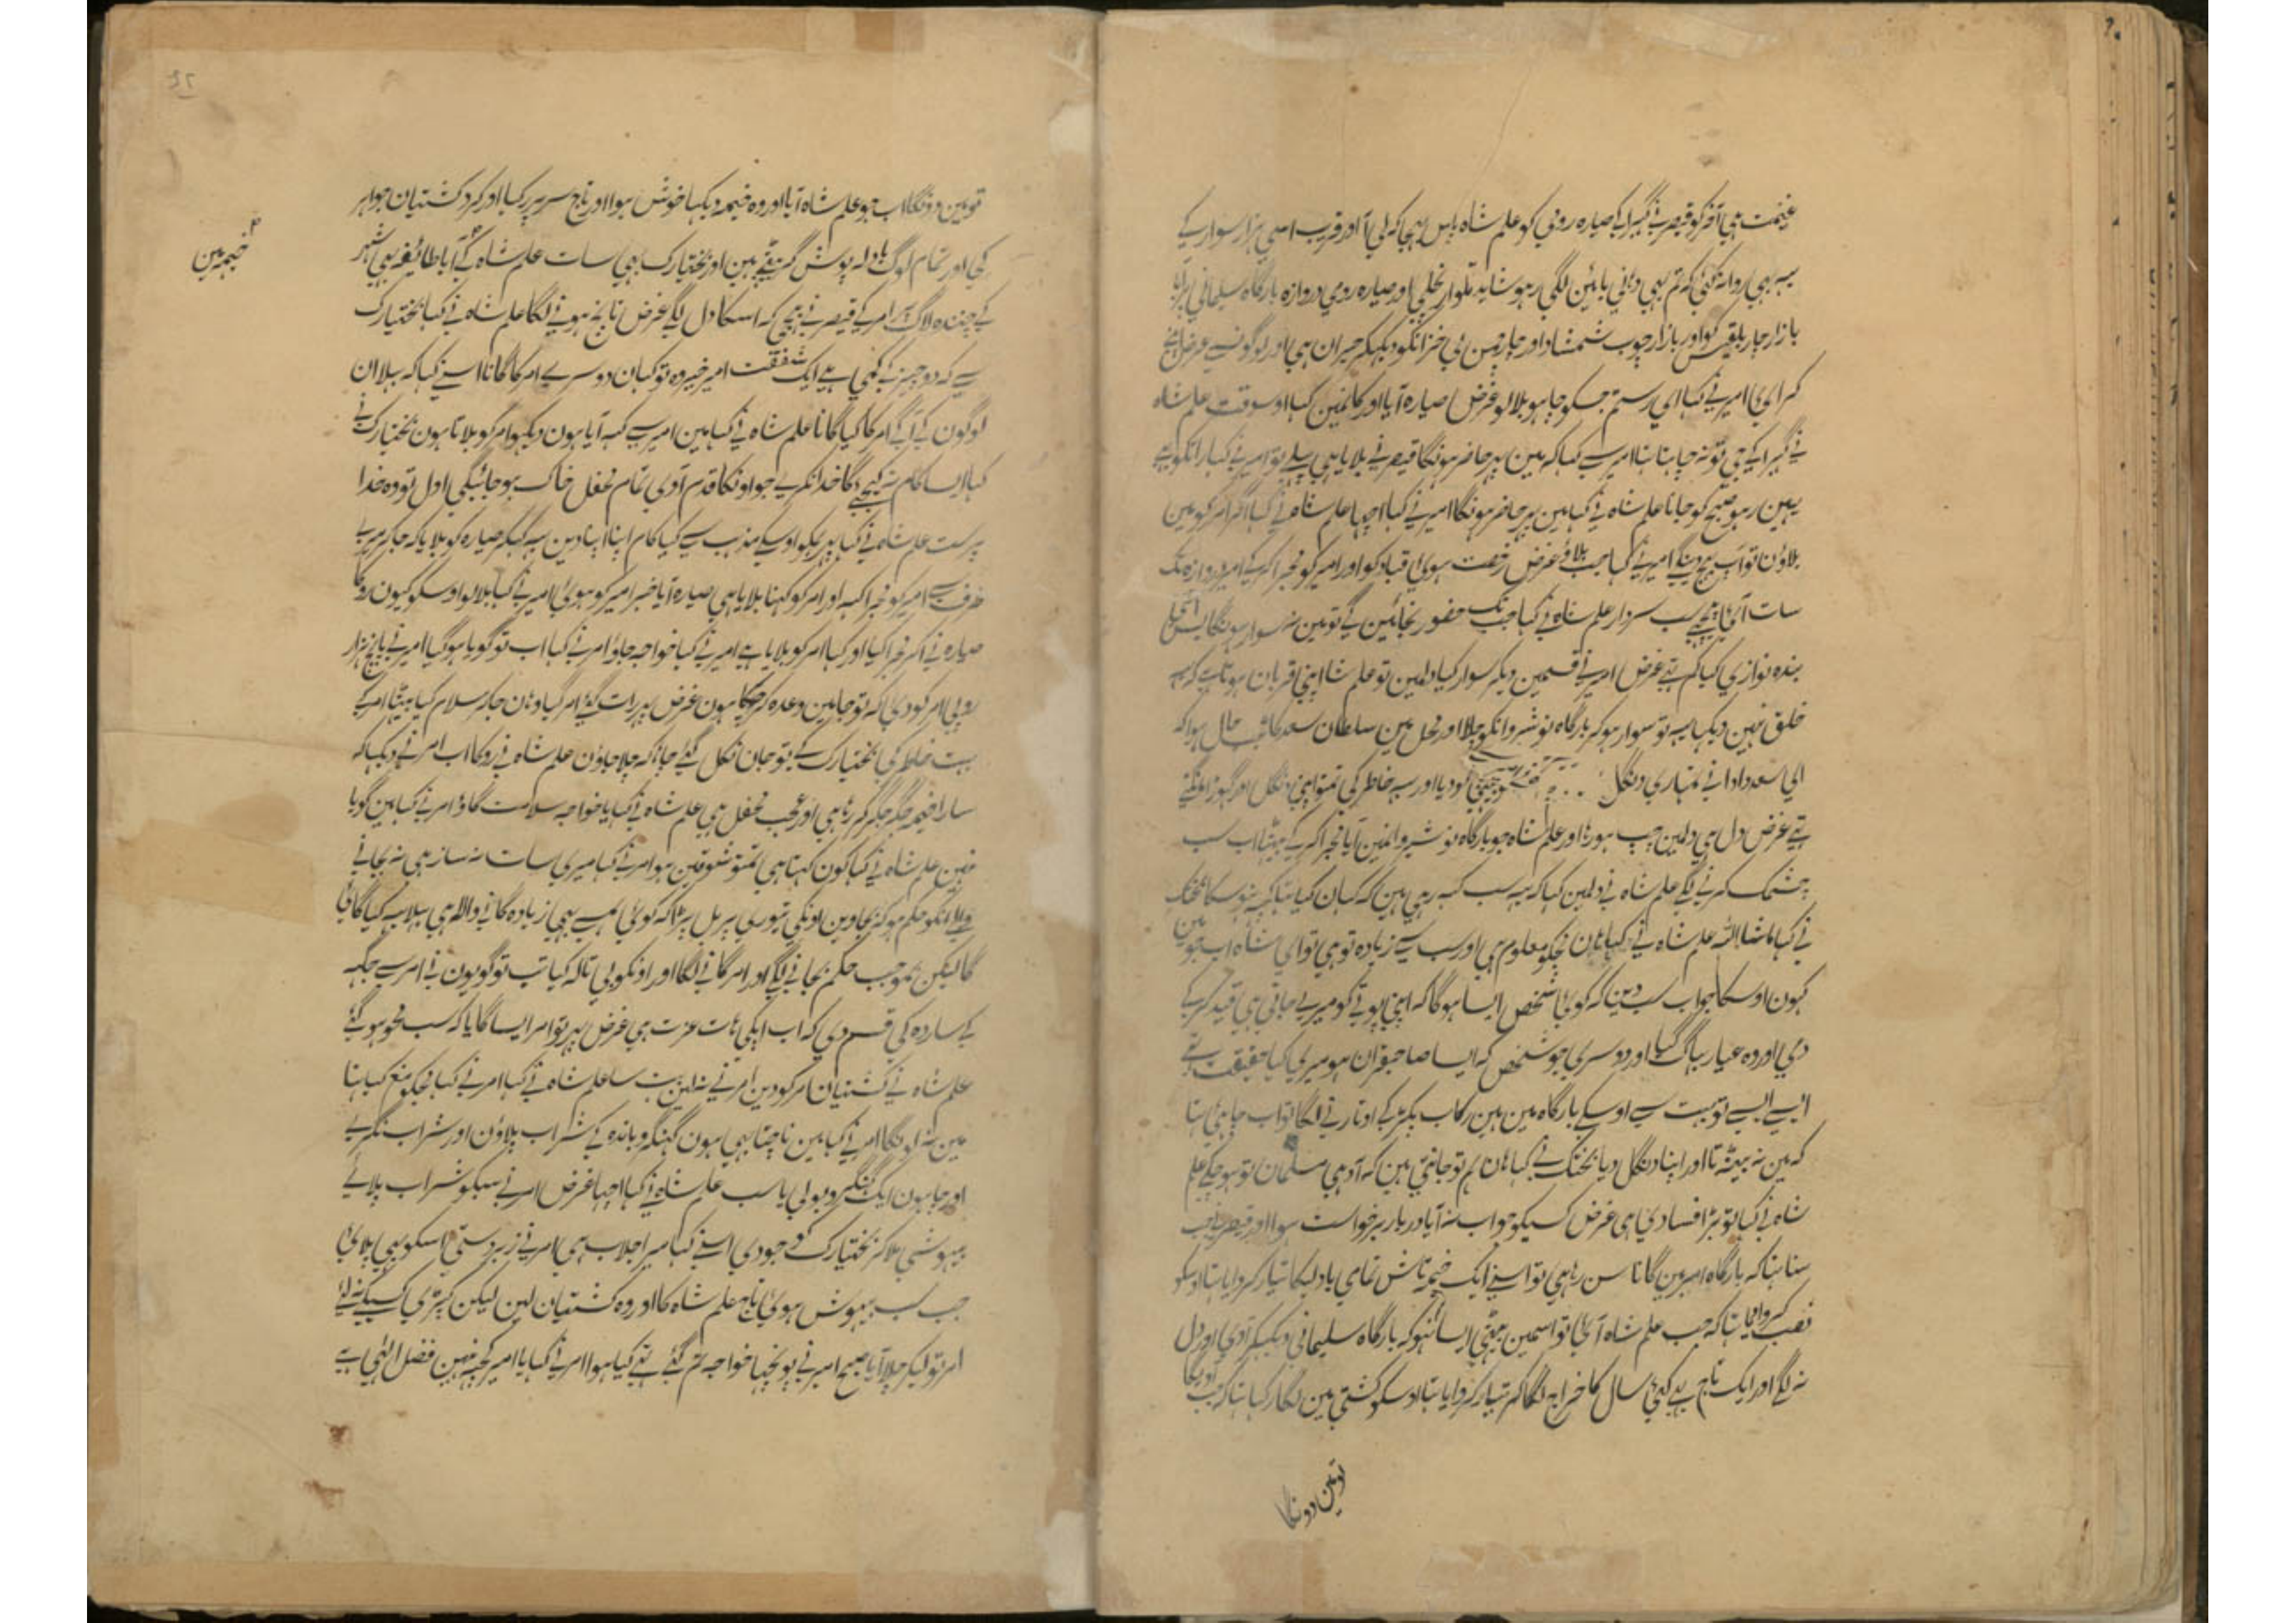 غنیمت ہی آخر کو قیصر نی گہبرا کی صیارہ رومی کو علم شاہ پاس بہیجا کہ لی آ اور قریب اسی ہزار سوار کی
یہہ بہی روانہ کئی کہ تم بہی دہانی بائین لگی رہو شاید تلوار نجلی اور صیارہ رومی دروازہ بارگاہ سلیمانی پر آیا
بازار چار بلقیس کو اور بازار چوب شمشاد اور چار چمن بی خزانکو دیکہکر حیران ہی اور لوگونسی عرض بیگی
کرای امیر نی کہا ای رستم جسکو چاہو بلا لو غرض صیارہ آیا اور کانمین کہا اوسوقت علم شاہ
نی گہبرا کی جی تو نہ چاہتا تہا امیر سی کہا کہ مین پہر حاضر ہونگا قیصر نی بلایا ہی پہلی تو امیر نی کہا رانکو
یہین رہو صبح کو جانا علم شاہ نی کہا مین پہر حاضر ہونگا امیر نی کہا اچہا علم شاہ نی کہا اگر امر کو مین
بلاون تو آپ بہیج دینگی امیر نی کہا جب بلاؤ غرض رخصت ہوی قباد کو اور امیر کو مجرا کر کی امیر دروازہ تک
سات آی پیچہی سب سردار علم شاہ نی کہا جب تک حضور نجائین گی تو مین نہ سوار ہونگا
بندہ نوازی کیا کم ہی غرض امیر نی قسمین دیکر سوار کیا دلمین تو علم شاہ اپنی قربان ہوتا ہی کہ یہہ
خلق نہین دیکہا یہہ تو سوار ہو کر بارگاہ نوشیروانکو چلا اور محل مین سلطان سعد کا حال ہوا کہ
ای سعد دادا نی تمہاری دنگل
تہی غرض دل ہی دلمین چپ ہو رہا اور علم شاہ جو بارگاہ نوشیروانمین آیا مجرا کر کی بیٹہا اب سب
چشمک کرنی لگی علم شاہ نی دلمین کہا کہ یہہ سب کہہ رہی ہین کہ کہان کیا تہا
نی کہا ماشااللہ علم شاہ نی کہا ہان مجکو معلوم ہی اور سب سی زیادہ تو ہی تو ای شاہ اب جو مین
کہون اوسکا جواب سب دین کہ کوئی شخص ایسا ہوگا کہ اپنی پوتی کو میری جاتی ہی قید کر کی
دی اور وہ عیار بہاگ گیا اور دوسری جو شخص کہ ایسا صاحبقران ہو میری کیا حقیقت تہی
ایسی ایسی تو بہت سی اوسکی بارگاہ مین ہین رکاب پکڑ کی اوتارنی لگا تو اب چاہئی تہا
کہ مین نہ بیٹہتا اور اپنا دنگل دیا بختک نی کہا ہان ہم تو جانتی ہین کہ آدہی مسلمان تو ہو چکی علم
شاہ نی کہا تو بڑا فسادی ہی غرض کسیکو جواب نہ آیا دربار برخواست ہوا اور قیصر نی جب
سنا تہا کہ بارگاہ امیر مین گانا سن رہا ہی تو اسنی ایک خیمہ تاش تمامی بادلیکا تیار کروایا تہا اوسکو
نصب کروایا تہا کہ جب علم شاہ آئیگا تو اسمین بیٹہی ایسا نہو کہ بارگاہ سلیمانی دیکہکر آوی اور دل
نہ لگی اور ایک تاج ہی کئی سال کا خراج لگا کر تیار کروایا تہا اوسکو کشتی مین لگا رکہا تہا کہ جب آویگا
تو مین دونگا
تو مین دونگا اب جو علم شاہ آیا اور وہ خیمہ دیکہا خوش ہوا اور تاج سر پر رکہا اور گرد کشتیان جواہر
خیمہ مین
کی اور تمام لوگ بادلہ پوش گرد بیٹہی ہین اور بختیارک بہی سات علم شاہ کی آیا طائفہ بہی شہر
کی چندہ لاگ امر کی قیصر نی بہیجی کہ اسکا دل لگی غرض ناچ ہونی لگا علم شاہ نی کہا بختیارک
سی کہ دو چیز کی کمی ہی ایک شفقت امیر خیر وہ تو کہان دوسری امر کا گانا اسنی کہا کہ بہلا ان
لوگون کی آگی امر کا کیا گانا علم شاہ نی کہا مین امیر سی کہہ آیا ہون دیکہو امر کو بلاتا ہون بختیارک نی
کہا ایسا کام نہ کیجئی گا خدا نکری جو اونکا قدم آوی تمام محفل خاک ہو جائیگی اول تو وہ خدا
پرست علم شاہ نی کہا پہر مجکو اوسکی مذہب سی کیا کام اپنا اپنا دین یہہ کہکر صیارہ کو بلایا کہ جا کر میری
طرف سی امیر کو مجرا کہہ اور امر کو کہنا بلایا ہی صیارہ آیا خبر امیر کو ہوئی امیر نی کہا بلا لو اوسکو کیون روکا
صیارہ نی آ کر مجرا کیا اور کہا امر کو بلایا ہی امیر نی کہا خواجہ جاؤ امر نی کہا اب تو گویا ہو گیا امیر نی پانچ ہزار
روپی امر کو دی کہ تو جا مین وعدہ کر چکا ہون غرض پہر رات گئی امر گیا وہان جا کر سلام کیا بیٹہا امر کی
بہت خاطر کی بختیارک کی تو جان نکل گئی چاہا کہ چلا جاون علم شاہ نی روکا اب امر نی دیکہا کہ
سارا خیمہ جگر جگر کر رہا ہی اور عجب محفل ہی علم شاہ نی کہا یا خواجہ سلامت گاؤ امر نی کہا مین گویا
نہین علم شاہ نی کہا کون کہتا ہی تمتو شوقین ہو امر نی کہا میری سات نہ ساز ہی نہ بجانی
والا انکو حکم ہو کہ بجاوین اونکی تیوری پر بل پڑا کہ کوئی ہمسی بہی زیادہ گانی والا ہی بہلا یہہ کیا گاوی
گا لیکن بموجب حکم بجانی لگی اور امر گانی لگا اور اونکو بی تالہ کیا تب تو گویون نی امر سی جگہہ
کی ساردہ کی قسم دی کہ اب ایکی ہات عزت ہی غرض پہر تو امر ایسا گایا کہ سب محو ہو گئی
علم شاہ نی کشتیان امر کو دین امر نی نہ لین بہت سا علم شاہ نی کہا امر نی کہا مجکو منع کیا تہا
مین نہ لونگا امر نی کہا مین ناچتا بہی ہون گہنگرو باندہ کی شراب پلاؤن اور شراب نگری
اور چاہون ایک گہنگرو بولی یا سب علم شاہ نی کہا اچہا غرض امر نی سبکو شراب پلائی
بیہوشی ملا کر بختیارک کو جو دی اسنی کہا میرا جلاب ہی امر نی زبردستی اسکو بہی پلائی
جب سب بیہوش ہوئی تاج علم شاہ کا اور وہ کشتیان لین لیکن کپڑی کسیکی نہ لئی
امر تو لیکر چلا آیا صبح امیر نی پوچہا خواجہ تم گئی تہی کیا ہوا امر نی کہا یا امیر کچہہ نہین فضل الہی ہی